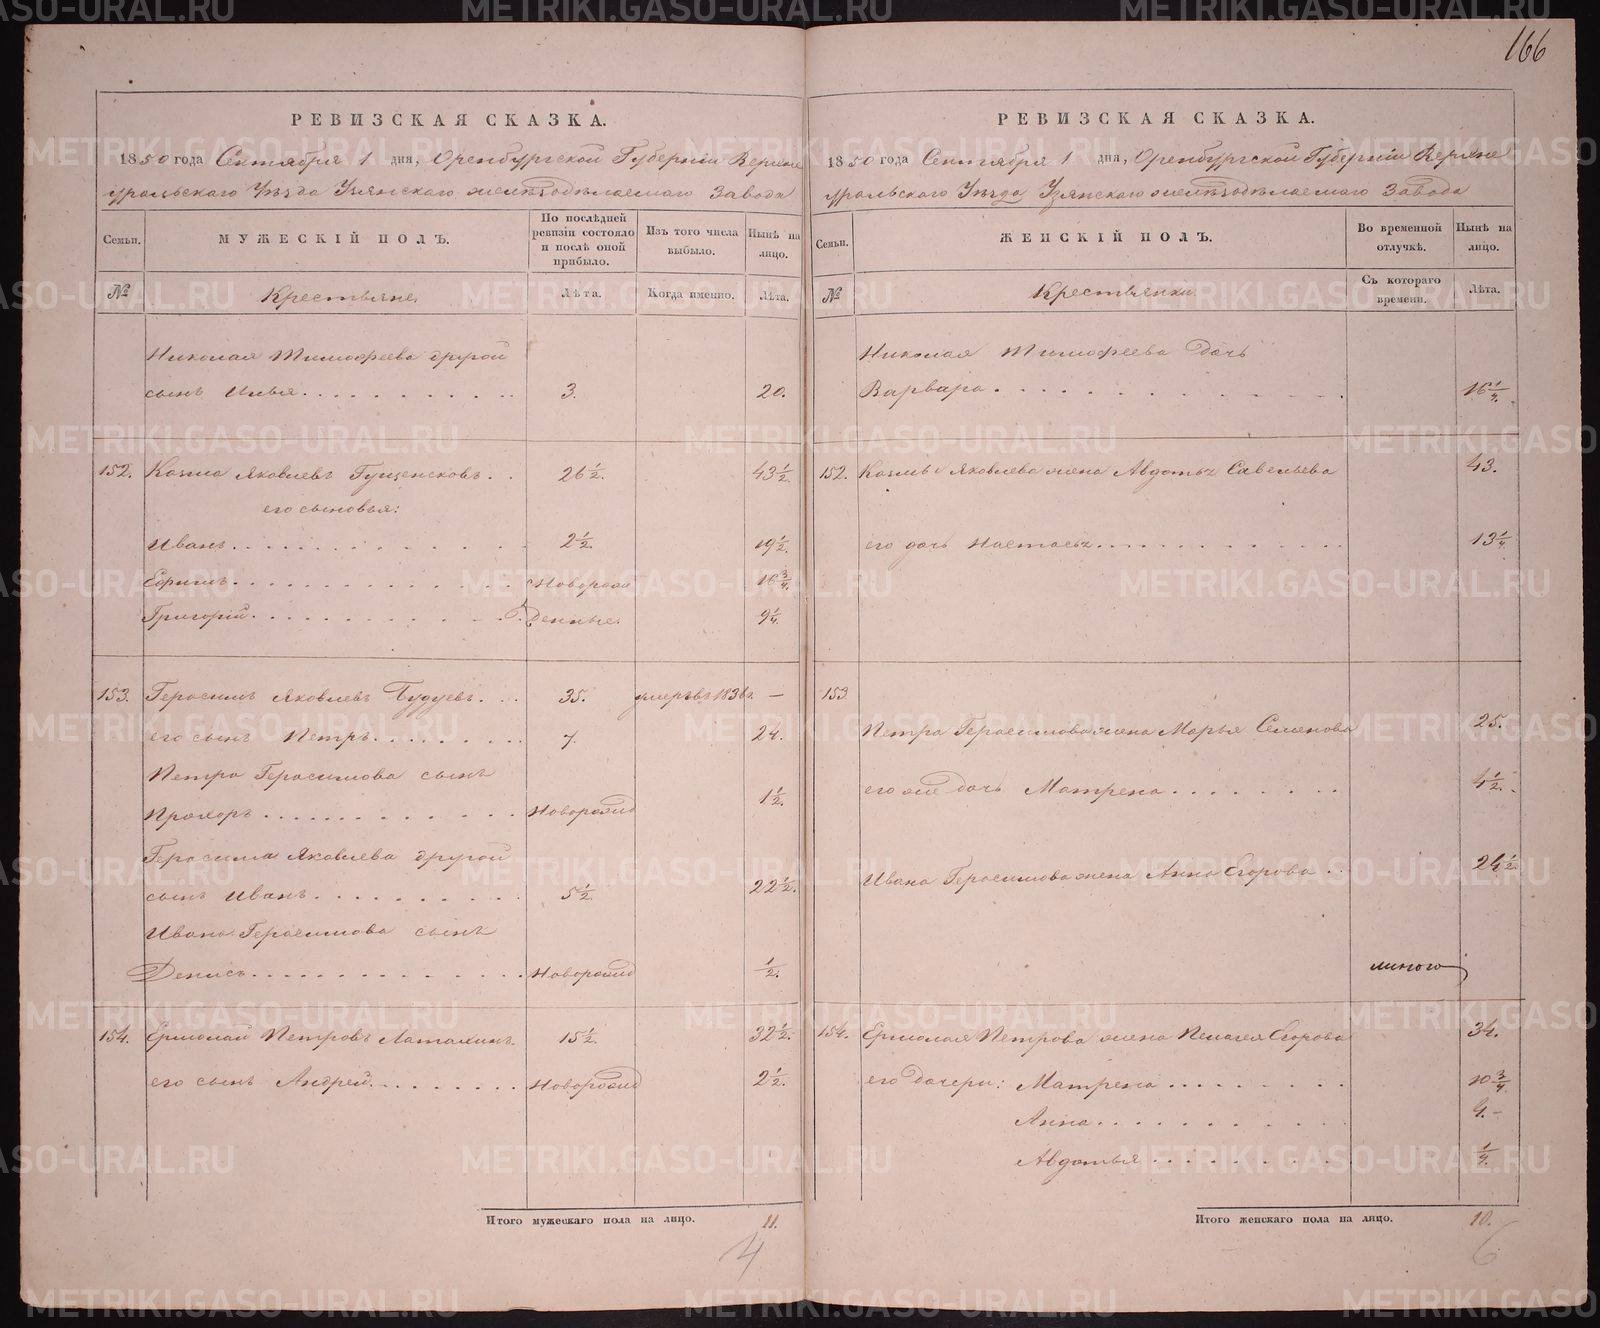 166
РЕВИЗСКАЯ СКАЗКА.
1850 года Сентября 1 дня, Оренбургской Губерніи Верхне
уральскаго Уѣзда Узянскаго желѣзодѣлаемаго Завода
Семьи. МУЖЕСКІЙ ПОЛЪ. По послѣдней ревизіи состояло и послѣ оной прибыло. Изъ того числа выбыло. Нынѣ на лицо.
№ Крестьяне Лѣта. Когда именно. Лѣта.
Николая Тимофеева другой
сынъ Илья 3. 20.
152. Казма Яковлевъ 26½. 43½.
его сыновья:
Иванъ 2½. 19½.
Ефимъ Новорож 16¾.
Григорій денные. 9¼.
153. Герасимъ Яковлевъ 35. умеръ въ 1836г. —
его сынъ Петръ 7. 24.
Петра Герасимова сынъ
Прохоръ Новорожд 1½.
Герасима Яковлева другой
сынъ Иванъ 5½. 22½.
Ивана Герасимова сынъ
Денисъ Новорожд ½.
154. Ермолай Петровъ Латахинъ 15½. 32½.
его сынъ Андрей Новорожд 2½.
Итого мужескаго пола на лицо. 11.
4
РЕВИЗСКАЯ СКАЗКА.
1850 года Сентября 1 дня, Оренбургской Губерніи Верхне
уральскаго Уѣзда Узянскаго желѣзодѣлаемаго Завода
Семьи. ЖЕНСКІЙ ПОЛЪ. Во временной отлучкѣ. Нынѣ на лицо.
№ Крестьянки Съ котораго времени. Лѣта.
Николая Тимофеева дочь
Варвара 16¼.
152. Казмы Яковлева жена Авдотья Савельева 43.
его дочь Настасья 13¼.
153
Петра Герасимова жена Марья Семенова 25.
его же дочь Матрена 4½.
Ивана Герасимова жена Анна Егорова 24½.
154. Ермолая Петрова жена Пелагея Егорова 34.
его дочери: Матрена 10¾.
Анна 9.–
Авдотья ¼.
Итого женскаго пола на лицо. 10.
6
METRIKI.GASO-URAL.RU